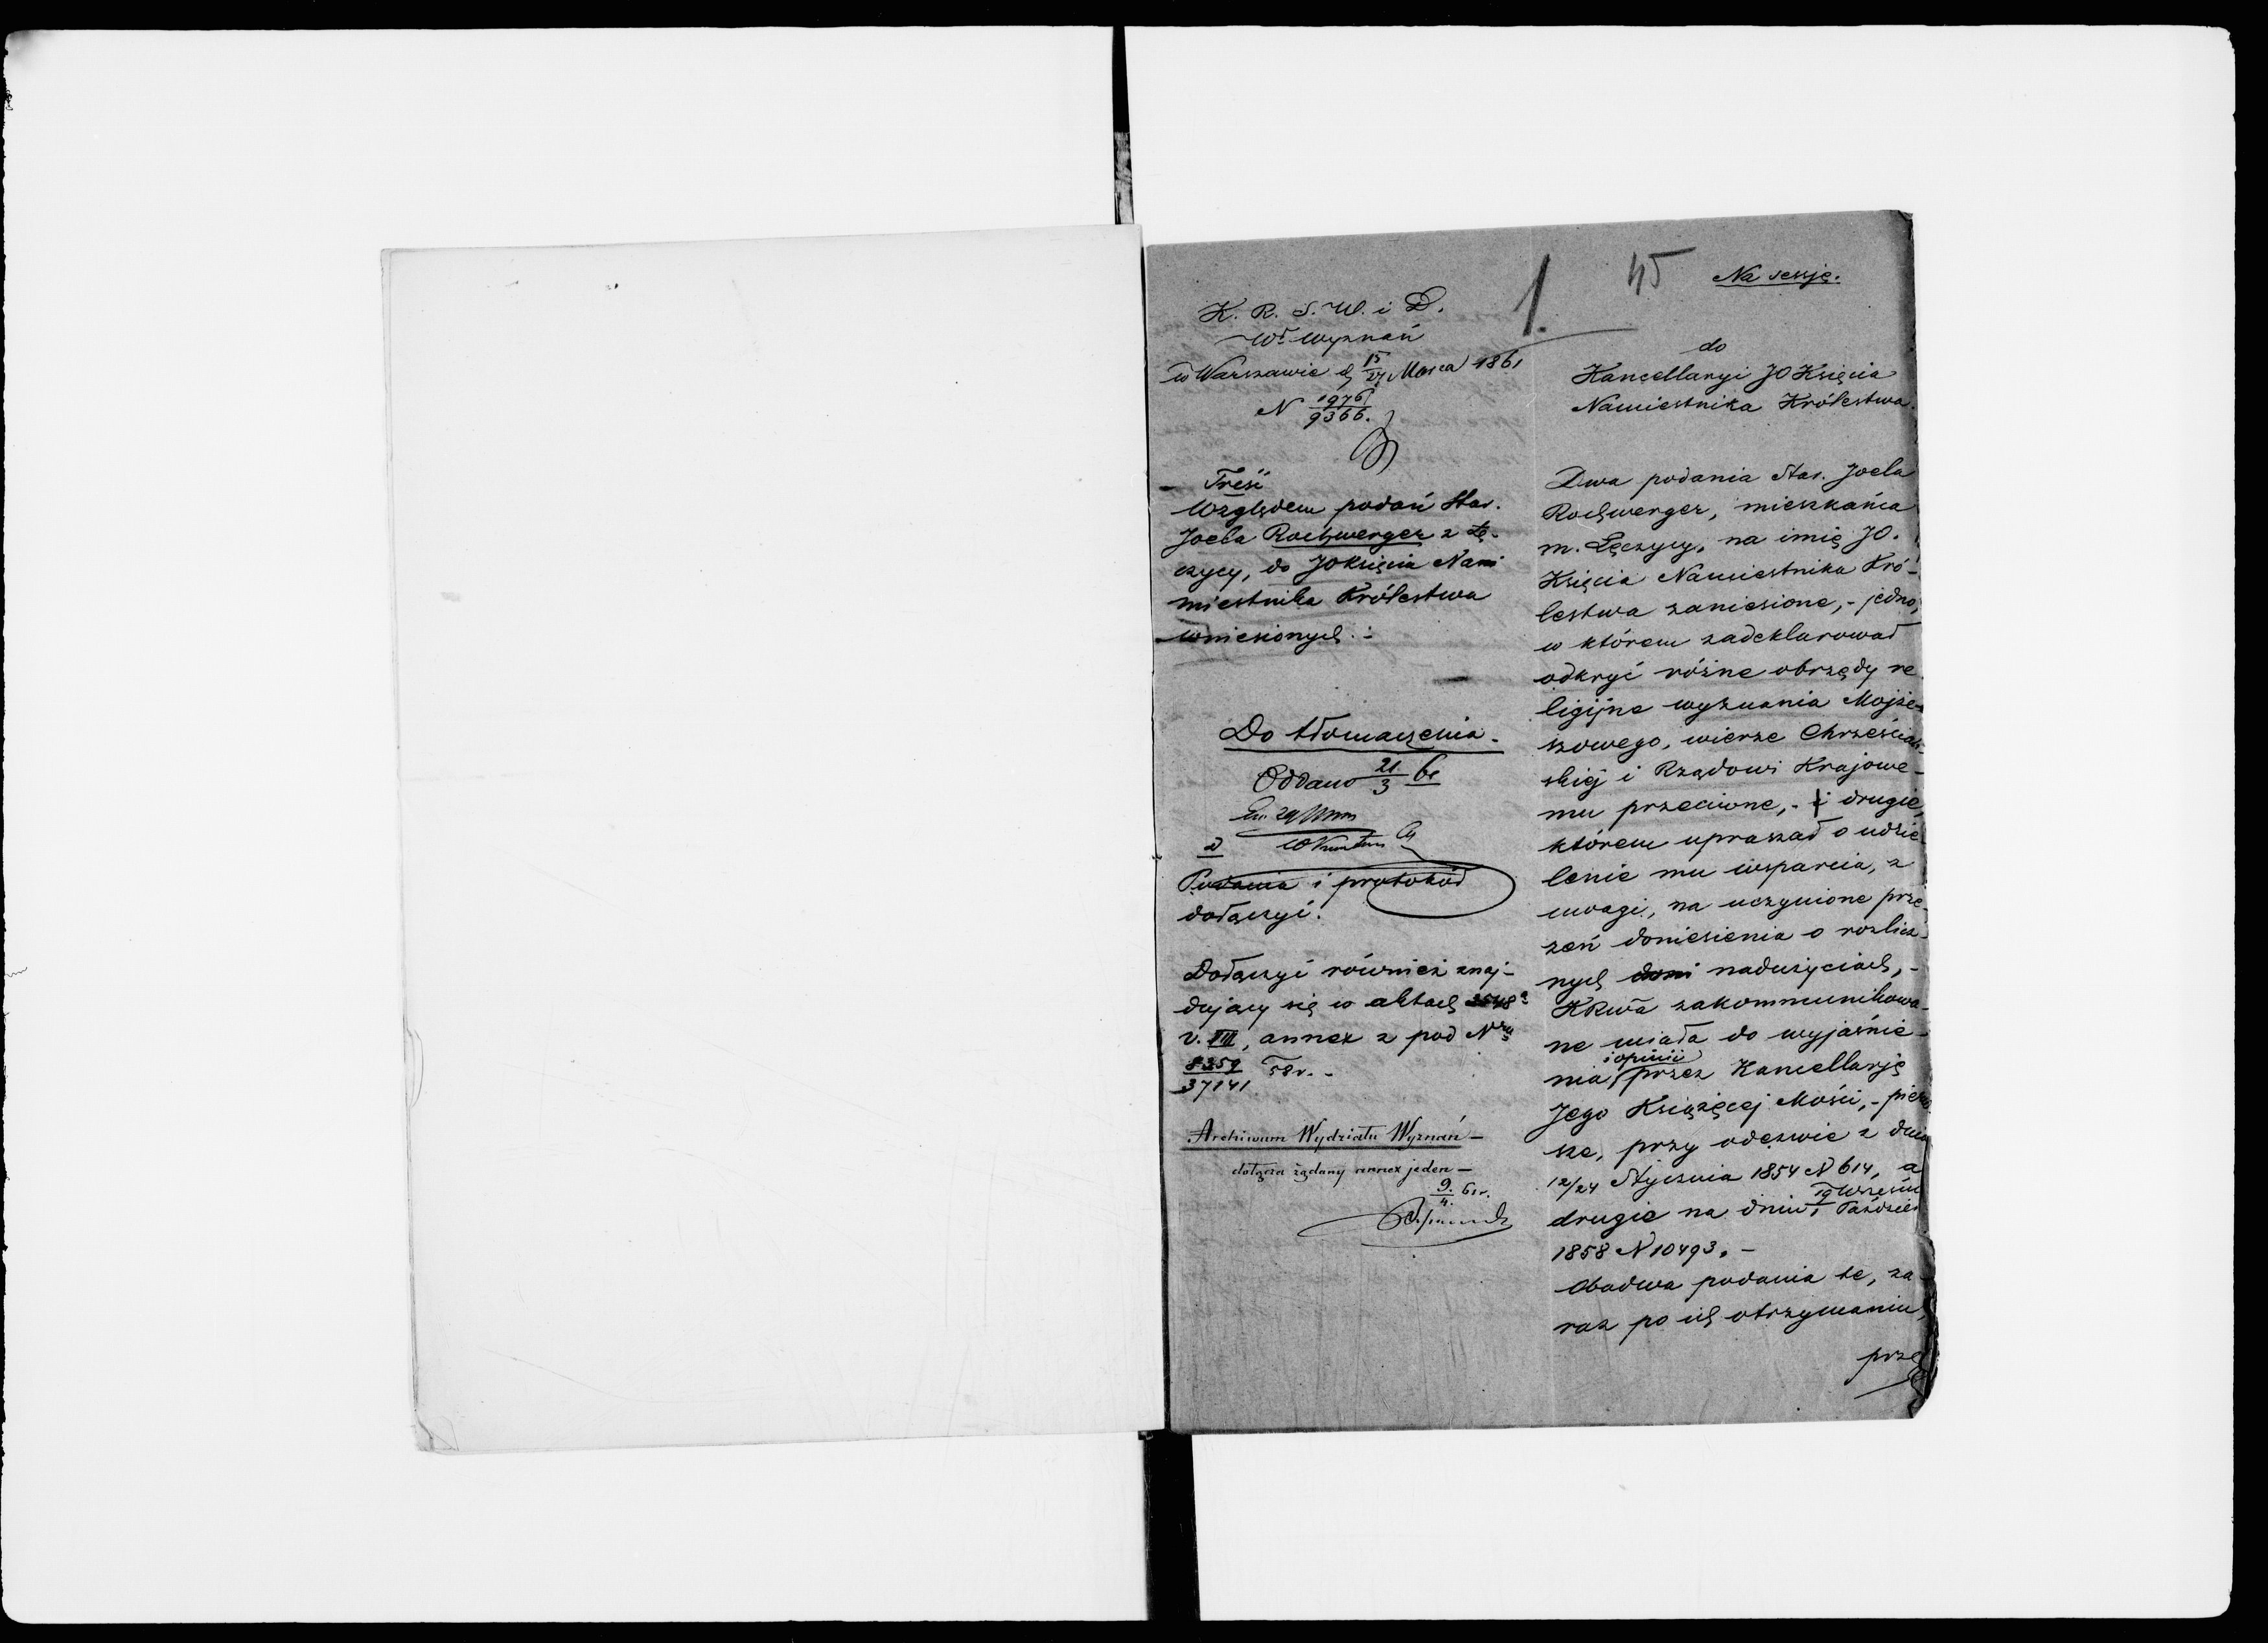 1.
45
Na sessję.
K. R. S. W. i D.
Wł Wyznań
w Warszawie d 15/27 Marca 1861
N 1976/9366.
Treść
Względem podań Star.
Joela Rochwerger z Łę-
czycy, do JOKsięcia Na
miestnika Królestwa
wniesionych. -
Do tłomaczenia.
Oddano 21/3 61
Podania i protokół
dołączyć.
Dołączyć również znaj-
dujący się w aktach 3548a
v. VIII, annex z pod Nru
8359/37141 58 r. -
Archiwum Wydziału Wyznań -
dołącza żądany annex jeden -
9/4. 61 r.
do
Kancellaryi JO Księcia
Namiestnika Królestwa.
Dwa podania Star. Joela
Rochwerger, mieszkańca
m. Łęczycy, na imię JO.
Księcia Namiestnika Kró-
lestwa zaniesione, - jedno,
w którem zadeklarował
odkryć różne obrzędy re
ligijne wyznania Mojże-
szowego, wierze Chrześciań-
skiej i Rządowi Krajowe-
mu przeciwne, - i drugie,
którem upraszał o udzie
lenie mu wsparcia, z
uwagi, na uczynione prze-
zeń doniesienia o rozlicz-
nych doni nadużyciach, -
KRwa zakommunikowa-
ne miała do wyjaśnie-
nia i opinii przez Kancellarję
Jego Książęcej Mości, - pierw
sze, przy odezwie z dnia
12/24 Stycznia 1854 N 614, a
drugie na dniu 19 Wrześn / 1 Paździer
1858 N 10493. -
Obadwa podania te, za-
raz po ich otrzymaniu,
prze